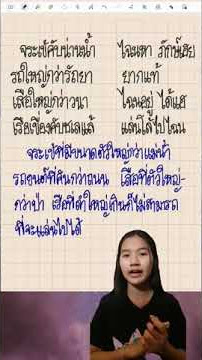 จระเข้คับน่านน้ำ ไฉนหา ภักษ์เฮย
รถใหญ่กว่ารัถยา ยากแท้
เสือใหญ่กว่าวนา ไฉนอยู่ ได้แฮ
เรือเขื่องคับชเลแล้ แล่นโล้ไปไฉน
จระเข้ที่มีขนาดตัวใหญ่กว่าแม่น้ำ
รถยนต์ที่คันกว่าถนน เสือที่ตัวใหญ่-
กว่าป่า เรือที่ลำใหญ่เกินก็ไม่สามารถ
ที่จะแล่นไปได้